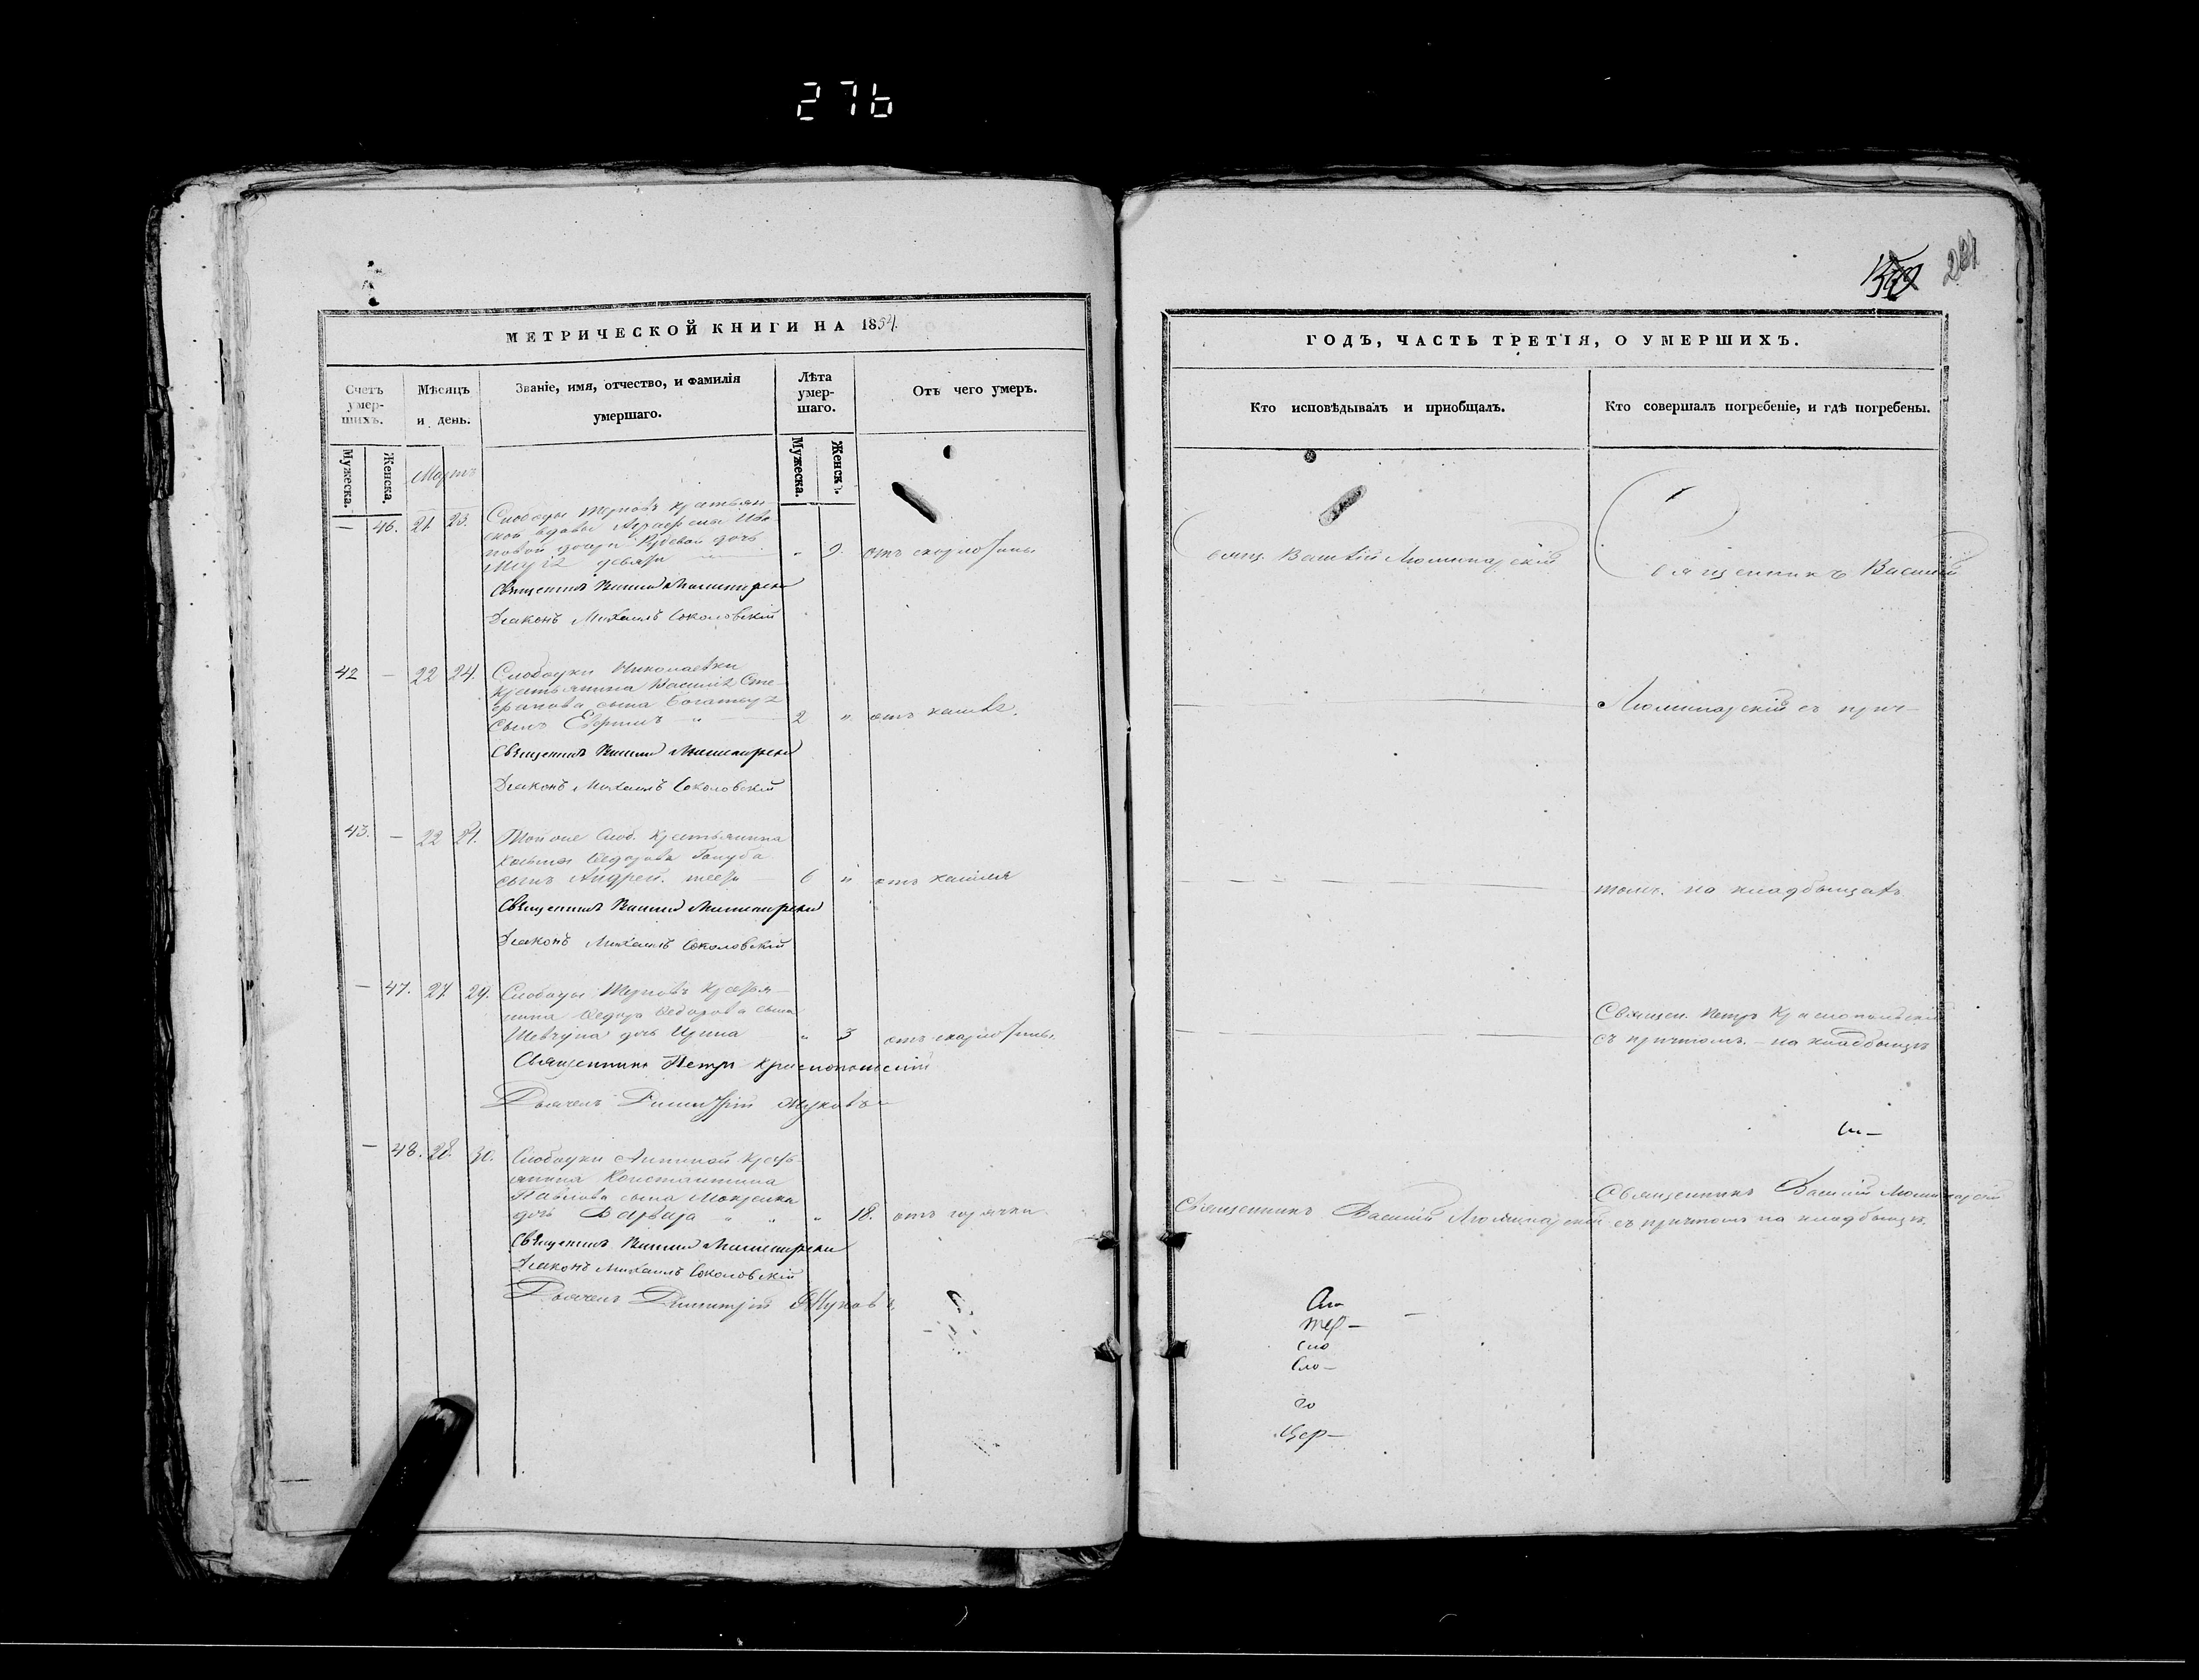 276
МЕТРИЧЕСКОЙ КНИГИ НА 1854.
Счетъ умер-шихъ.
Мѣсяцъ и день.
Званіе, имя, отчество, и фамилія умершаго.
Лѣта умер-шаго.
Отъ чего умеръ.
Мужеска.
Женска.
Мужеска.
Женскъ.
Мартъ
— 46. 21 23. Слободы Терновъ крестьян-
ской вдовы Аграфены Ива-
новой дочь
" 9. отъ скарлотины
Священникъ Василій Люминарскій
Діаконъ Михаилъ Соколовскій
42 — 22 24. Слободки Николаевки
крестьянина Василія Сте-
фанова сына
сынъ Ефремъ " 2 " отъ кашля.
Священникъ Василій Люминарскій
Діаконъ Михаилъ Соколовскій
43. — 22 24. Той оне Слоб. крестьянина
Федорова Голуба
сынъ Андрей. 6 " отъ кашля
Священникъ Василій Люминарскій
Діаконъ Михаилъ Соколовскій
— 47. 27 29. Слободы Терновъ крестья-
нина Федора Федорова сына
Шевчуна дочь Ирина " 3 отъ скарлотины.
Священникъ Петръ Краснопольскій
Дьячекъ Димитрій Жуковъ
— 48. 28. 30. Слободки крестья-
янина Константина
Павлова сына Мокренка
дочь Варвара " " " 18. отъ горячки.
Священникъ Василій Люминарскій
Діаконъ Михаилъ Соколовскій
Дьячекъ Димитрій Жуковъ
281
ГОДЪ, ЧАСТЬ ТРЕТІЯ, О УМЕРШИХЪ.
Кто исповѣдывалъ и пріобщалъ.
Кто совершалъ погребеніе, и гдѣ погребены.
Свящ. Василій Люминарскій
Священникъ Василій
Люминарскій съ прич-
томъ. на кладбищахъ
Священ. Петръ Краснопольскій
съ причтомъ. — на кладбищѣ
Священникъ Василій Люминарскій
Священникъ Василій Люминарскій
съ причтомъ на кладбищѣ.
тер—
сло
Сло—
го
Цер—